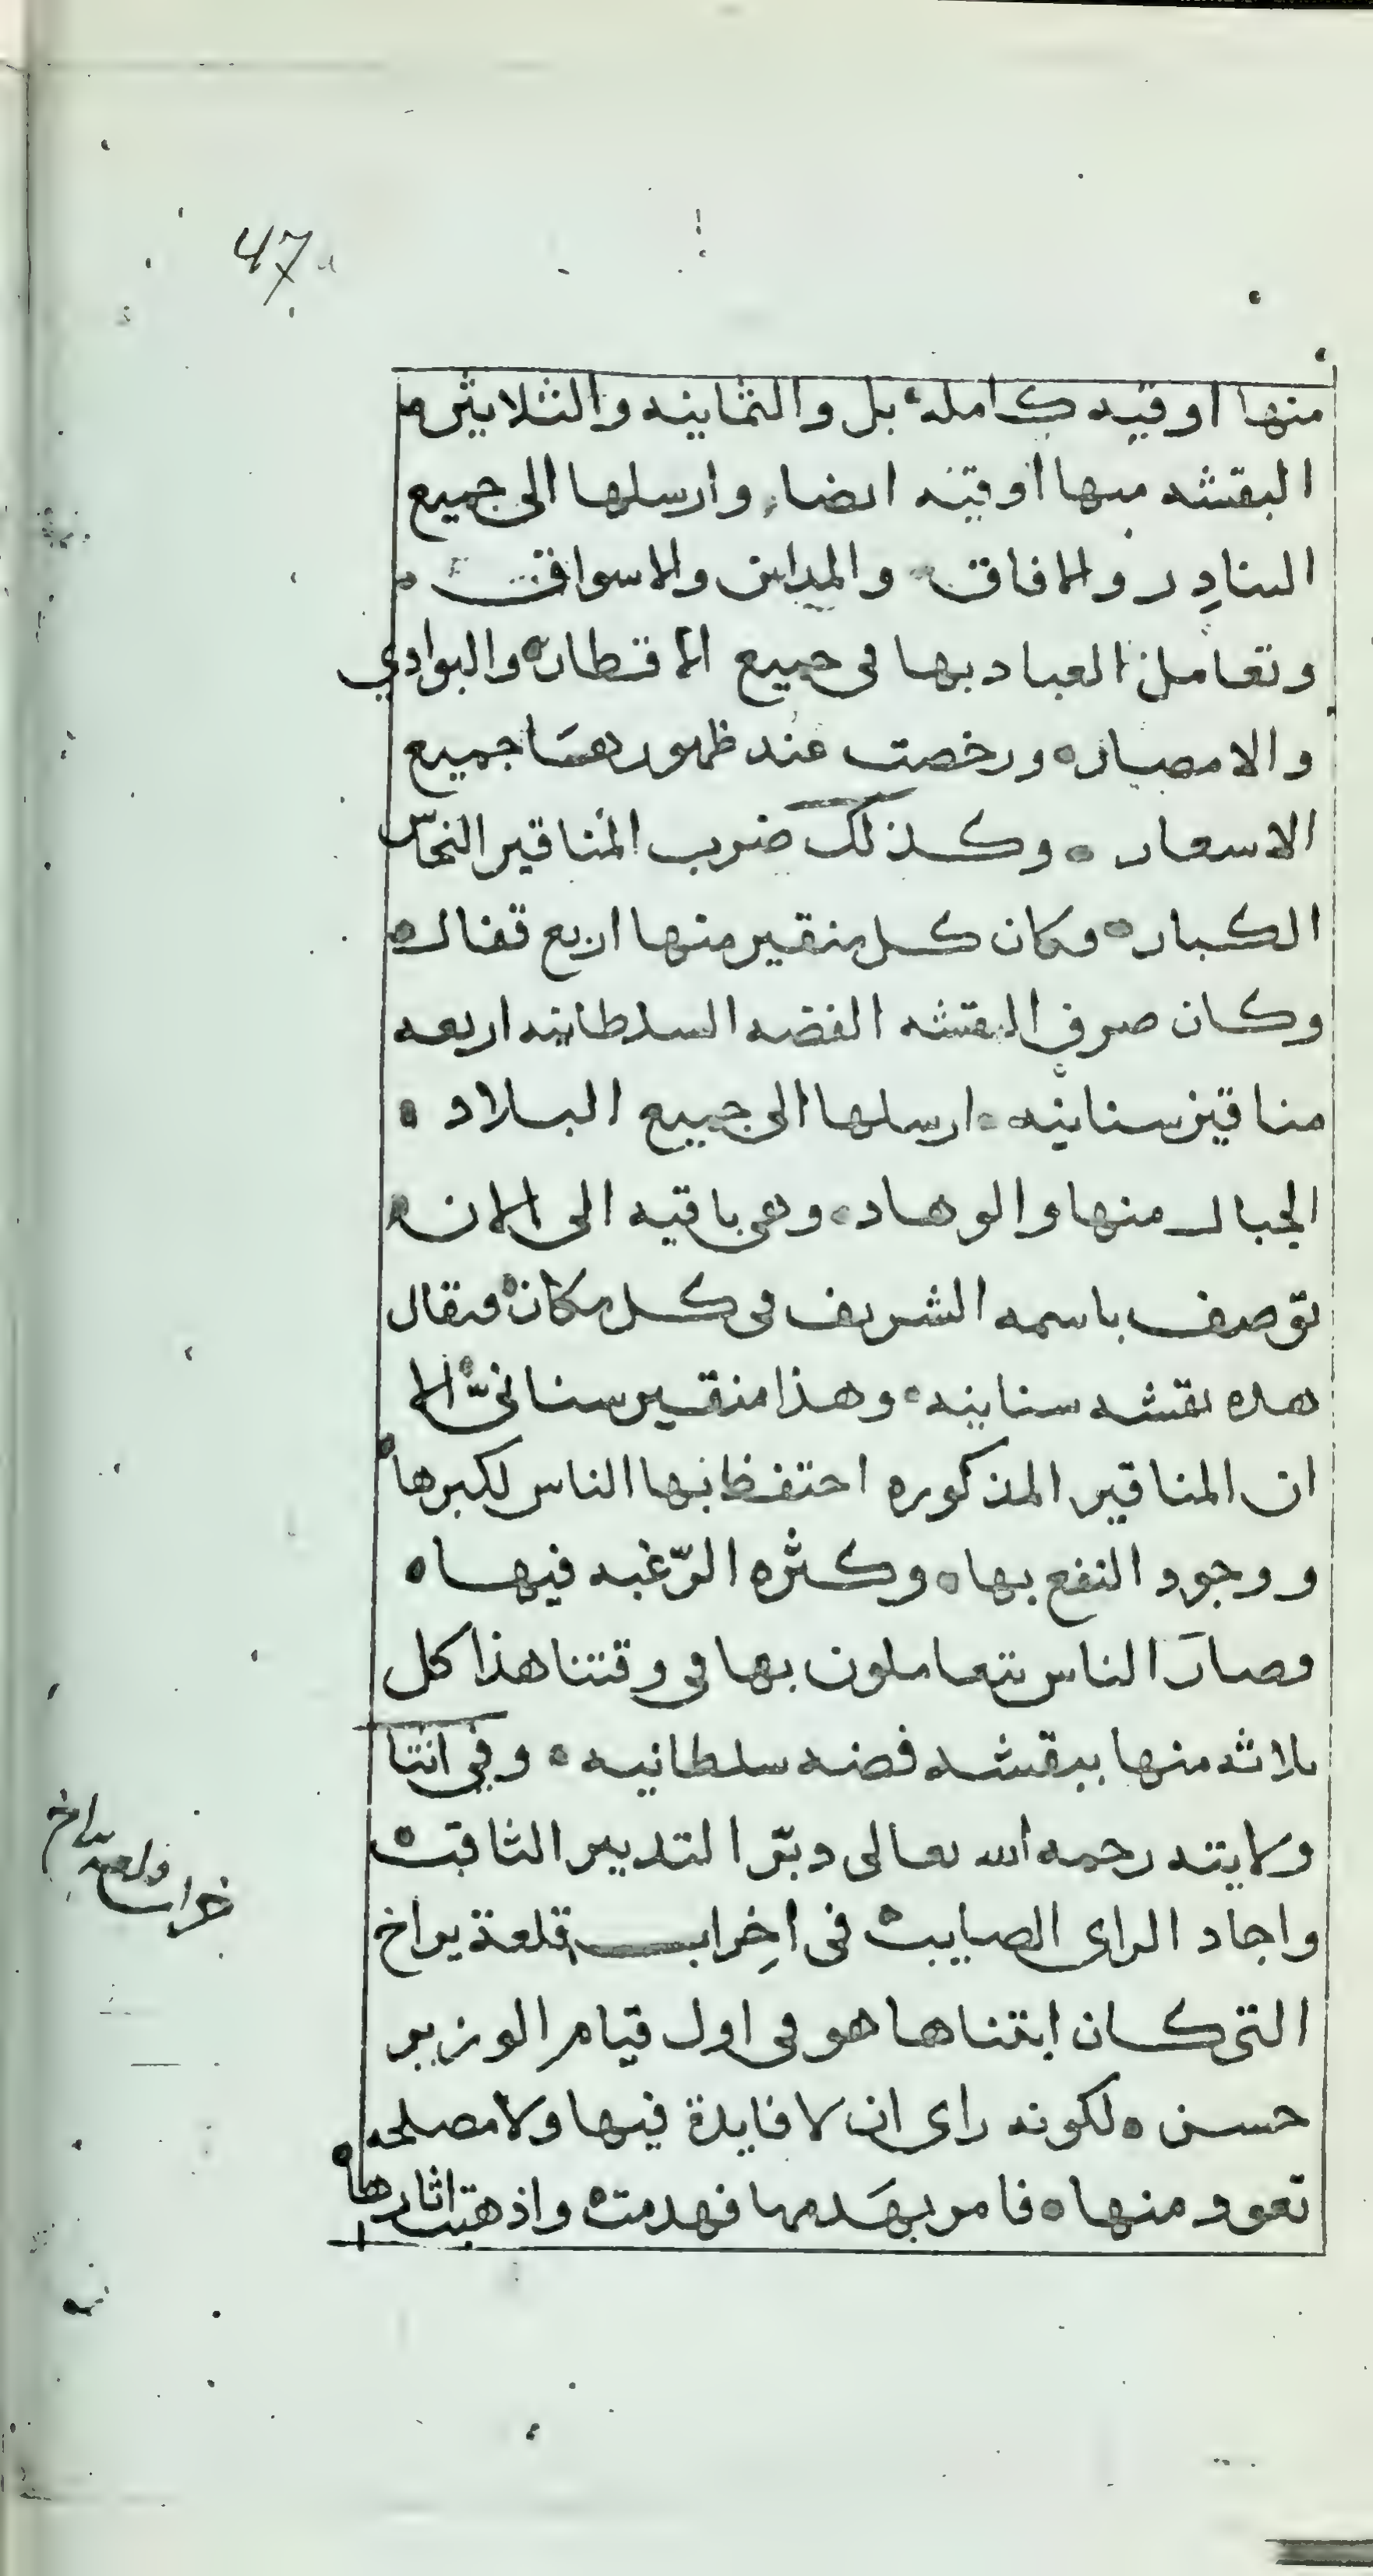 47
منها اوقيه كامله بل والثمانيه والثلاثين ما
البقشه منها اوقيه ايضا، وارسلها الى جميع
البنادر والافاق والمداين والاسواق
وتعامل العباد بها فى جميع الاقطار ه والبوادي
والامصار ه ورخصت عند ظهورها جميع
الاسعار ه وكذلك ضرب المناقير النحاس
الكبار ه وكان كل منقير منها اربع قفال ه
وكان صرف البقشه الفضه السلطانيه اربعه
مناقير سنانيه ه ارسلها الى جميع البلاد ه
الجبال منها والوهاد ه وهى باقيه الى الان ه
توصف باسمه الشريف فى كل مكان ه فيقال
هذه بقشه سنانيه ه وهذا منقير سنانى ه الا
ان المناقير المذكوره احتفظ بها الناس لكبرها ه
ووجود النفع بها ه وكثره الرّغبه فيها ه
فصار الناس يتعاملون بها فى وقتنا هذا كل
ثلاثه منها ببقشه فضه سلطانيه ه وفي اثنا
ولايته رحمه الله تعالى دبّر التدبير الثاقب ه
واجاد الراى الصايب ه فى اخراب قلعة يراخ
التى كان ابتناها هو فى اول قيام الوزير
حسن ه لكونه راى ان لا فايدة فيها ولا مصلحه
تعود منها ه فامر بهدمها فهدمت ه واذهبت اثارها ه
خراب قلعة يراخ